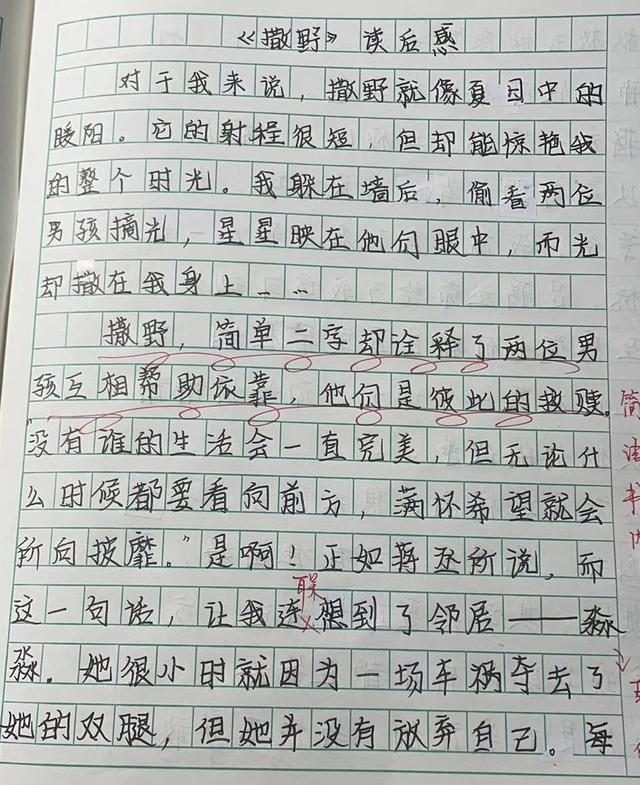 《撒野》读后感
对于我来说，撒野就像夏日中的
暖阳。它的射程很短，但却能惊艳我
的整个时光。我躲在墙后，偷看两位
男孩摘光，星星映在他们眼中，而光
却撒在我身上……
撒野，简单二字却诠释了两位男
孩互相帮助依靠，他们是彼此的救赎。
"没有谁的生活会一直完美，但无论什
么时候都要看向前方，满怀希望就会
所向披靡。"是啊！正如蒋丞所说，而
联
这一句话，让我连想到了邻居——淼
淼．她很小时就因为一场车祸夺去了
她的双腿，但她并没有放弃自己。每
简